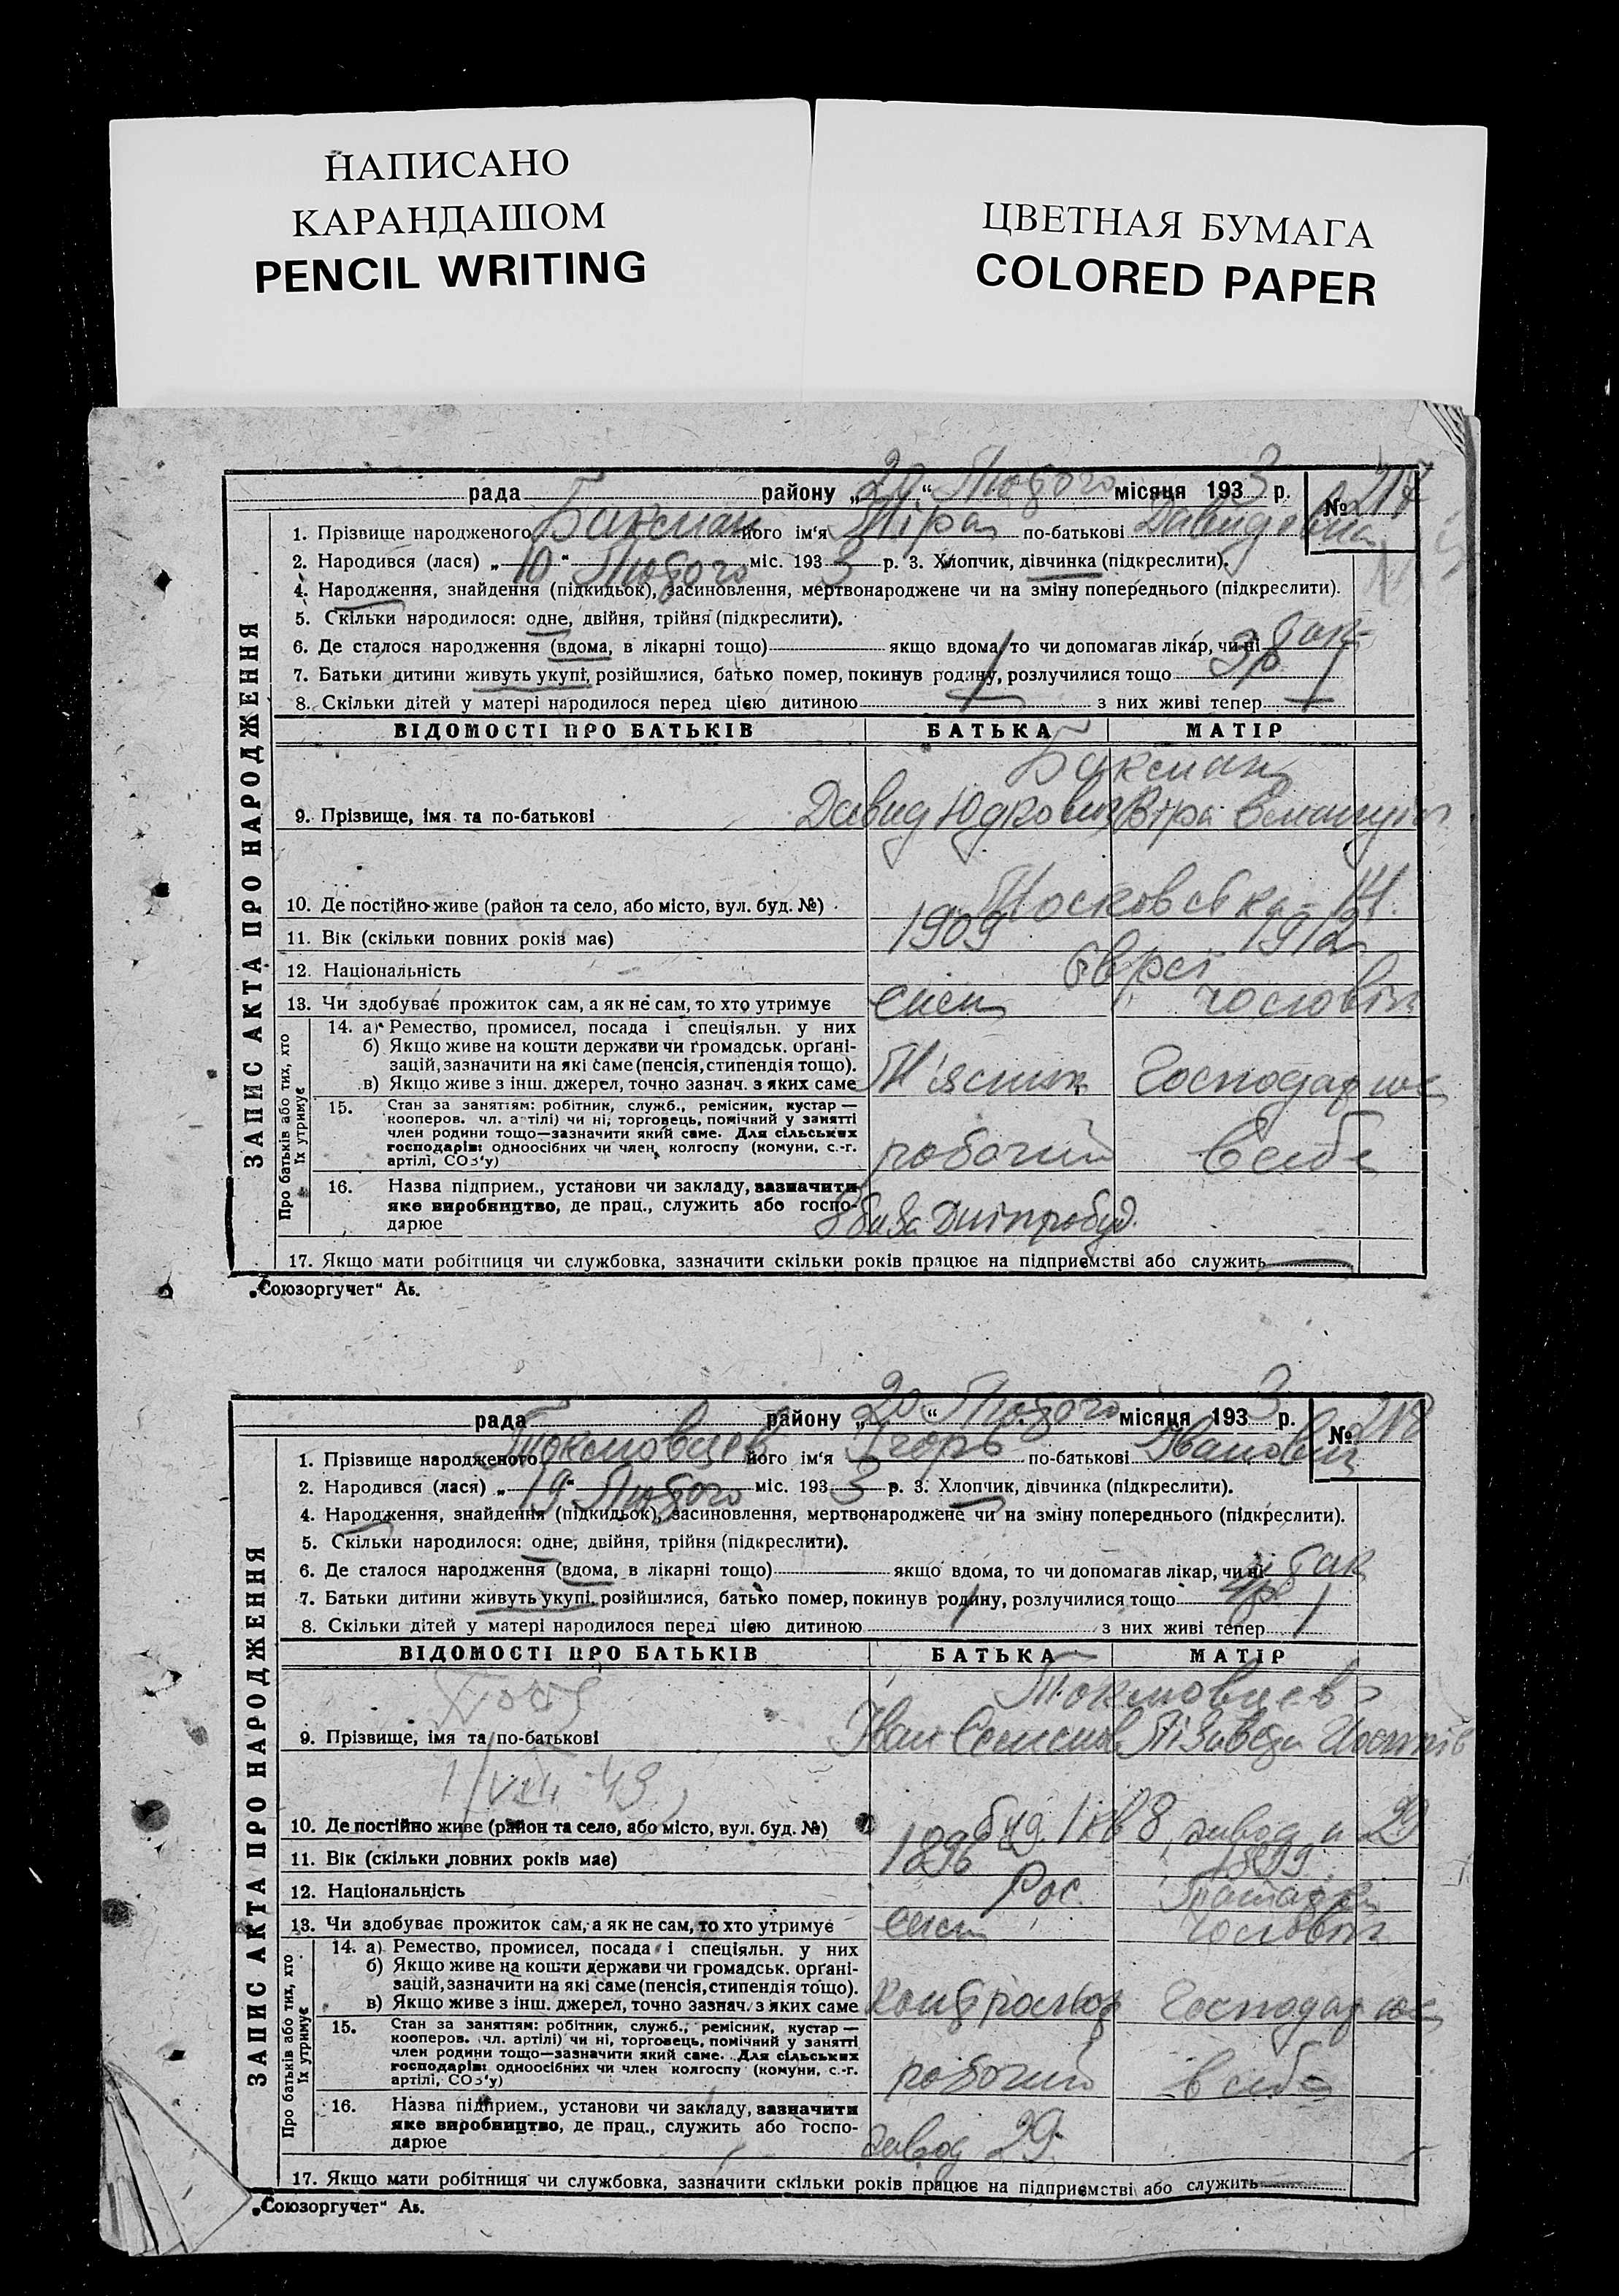 НАПИСАНО
КАРАНДАШОМ
PENCIL WRITING
ЦВЕТНАЯ БУМАГА
COLORED PAPER
ЗАПИС АКТА ПРО НАРОДЖЕННЯ
рада району „20“ Лютого місяця 1933 р. № 217
1. Прізвище народженого Баксман його ім'я Міра по-батькові Давидовна
2. Народився (лася) „10“ Лютого міс. 1933 р. 3. Хлопчик, дівчинка (підкреслити).
4. Народження, знайдення (підкидьок), засиновлення, мертвонароджене чи на зміну попереднього (підкреслити).
5. Скільки народилося: одне, двійня, трійня (підкреслити).
6. Де сталося народження (вдома, в лікарні тощо) якщо вдома, то чи допомагав лікар, чи ні так
7. Батьки дитини живуть укупі, розійшлися, батько помер, покинув родину, розлучилися тощо
8. Скільки дітей у матері народилося перед цією дитиною 1 з них живі тепер 1
ВІДОМОСТІ ПРО БАТЬКІВ БАТЬКА МАТІР
Баксман
9. Прізвище, імя та по-батькові Давид Юдкович Віра
10. Де постійно живе (район та село, або місто, вул. буд. №) Московська - 14.
11. Вік (скільки повних років має) 1909 1912
12. Національність Євреї
13. Чи здобуває прожиток сам, а як не сам, то хто утримує сам чоловік
Про батьків або тих, хто їх утримує
14. а) Ремество, промисел, посада і спеціяльн. у них
б) Якщо живе на кошти держави чи громадськ. орґані-
зацій, зазначити на які саме (пенсія, стипендія тощо).
в) Якщо живе з інш. джерел, точно зазнач. з яких саме М'ясник Господарює
15. Стан за заняттям: робітник, служб., ремісник, кустар —
кооперов. чл. артілі) чи ні, торговець, помічний у занятті
член родини тощо—зазначити який саме. Для сільських
господарів: одноосібних чи член колгоспу (комуни, с.-г.
артілі, СОЗ'у) робочий в себе
16. Назва підприєм., установи чи закладу, зазначити
яке виробництво, де прац., служить або госпо-
дарюе Дніпробуд.
17. Якщо мати робітниця чи службовка, зазначити скільки років працює на підприємстві або служить
„Союзоргучет“ Аб.
ЗАПИС АКТА ПРО НАРОДЖЕННЯ
рада району „20“ Лютого місяця 1933 р. № 218
1. Прізвище народженого Токмовцев його ім'я Ігорь по-батькові Іванович
2. Народився (лася) „19“ Лютого міс. 1933 р. 3. Хлопчик, дівчинка (підкреслити).
4. Народження, знайдення (підкидьок), засиновлення, мертвонароджене чи на зміну попереднього (підкреслити).
5. Скільки народилося: одне, двійня, трійня (підкреслити).
6. Де сталося народження (вдома, в лікарні тощо) якщо вдома, то чи допомагав лікар, чи ні так
7. Батьки дитини живуть укупі, розійшлися, батько помер, покинув родину, розлучилися тощо
8. Скільки дітей у матері народилося перед цією дитиною 1 з них живі тепер 1
ВІДОМОСТІ ПРО БАТЬКІВ БАТЬКА МАТІР
Токмовцев
9. Прізвище, імя та по-батькові Іван Семенов Лізавета
10. Де постійно живе (район та село, або місто, вул. буд. №) буд. 1 кв 8 завод 29
11. Вік (скільки повних років має) 1896 1899
12. Національність Рос.
13. Чи здобуває прожиток сам, а як не сам, то хто утримує сам чоловік
Про батьків або тих, хто їх утримує
14. а) Ремество, промисел, посада і спеціяльн. у них
б) Якщо живе на кошти держави чи громадськ. орґані-
зацій, зазначити на які саме (пенсія, стипендія тощо).
в) Якщо живе з інш. джерел, точно зазнач. з яких саме контрольор Господарює
15. Стан за заняттям: робітник, служб., ремісник, кустар —
кооперов. чл. артілі) чи ні, торговець, помічний у занятті
член родини тощо—зазначити який саме. Для сільських
господарів: одноосібних чи член колгоспу (комуни, с.-г.
артілі, СОЗ'у) робочий в себе
16. Назва підприєм., установи чи закладу, зазначити
яке виробництво, де прац., служить або госпо-
дарюе завод 29.
17. Якщо мати робітниця чи службовка, зазначити скільки років працює на підприємстві або служить
„Союзоргучет“ Аб.